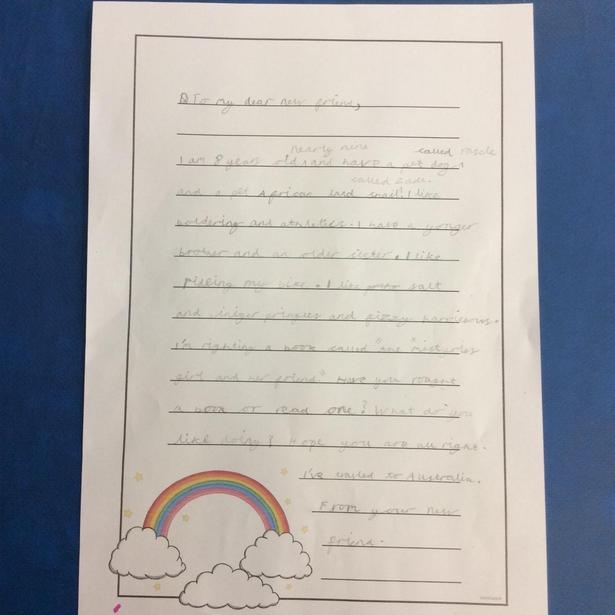 To my dear new friend,
nearly nine called rascle
I am 8 years old, and have a pet dog
called Zade.
and a pet African land snail! I like
boldering and athletics. I have a yonger
brother and an older sister. I like
rideing my bike. I like salt
and viniger pringles and fizzy
I'm righting a book called "the misterles
girl and her friend" Have you
a book or read one? What do you
like doing? Hope you are all right.
I've to Australia.
From your new
friend.